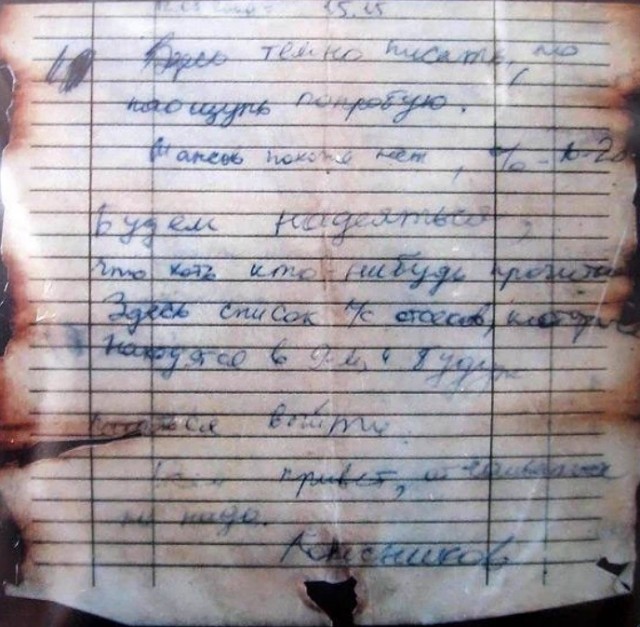 15.15
Здесь темно писать, но
наощупь попробую.
Шансов похоже нет, % - 10-20
Будем надеяться,
что хоть кто нибудь прочитает
Здесь список л/с отсеков, которые
находятся в 9-м и будут
выйти.
привет, отчаиваться
не надо.
Колесников